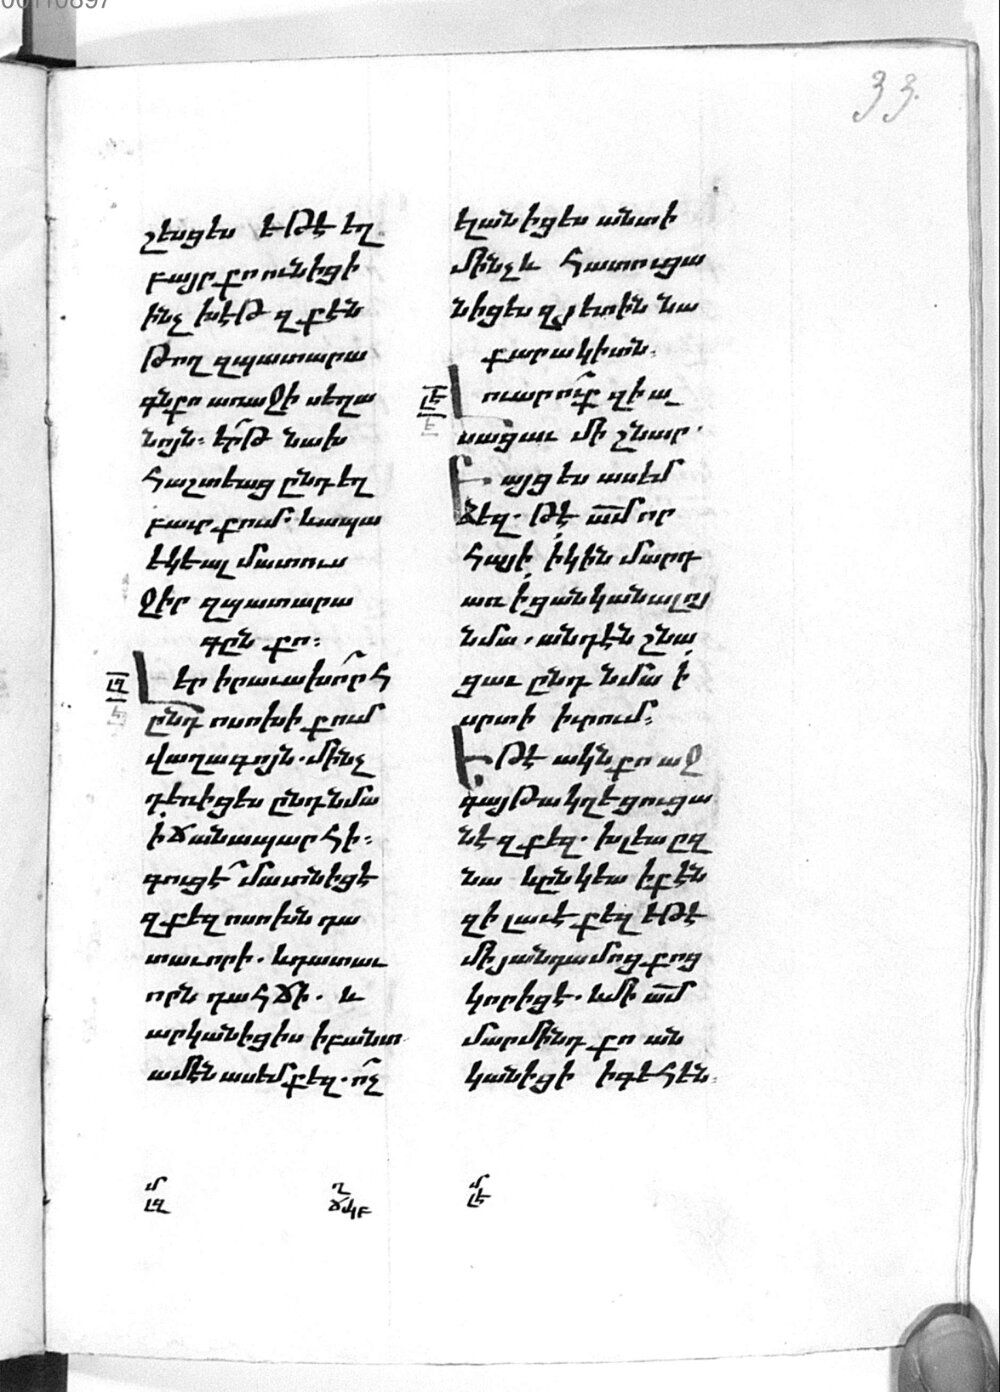 33
շեսցես եթէ եղ
բայր քո ունիցի
ինչ խէթ զքէն
թող զպատարա
գնքո առաջի սեղա
նոյն։ երթ նախ
հաշտեաց ընդեղ
բաւր քում. և ապա
եկեալ մատուս
ջիր զպատարա
գըն քո։
Լեր իրաւախոր՜հ
ընդ ոսոխի քում
վաղագոյն. մինչ
դեռիցես ընդնմա
ի ճանապարհի։
գուցէ՜ մատնիցէ
զքեզ ոսոխն դա
տաւորի. և դատաւ
որն դահճի. և
արկանիցիս ի բանտ
ամէն ասեմ քեզ. ո՜չ
ելանիցես անտի
մինչև հատուցա
նիցես զյետին նա
քարակիտն։
Լուարո՜ւք զի ա
սացաւ մի շնար՛
Բայց ես ասեմ
ձեզ. թէ ա՟մ որ
հայի ի կին մարդ
առ ի ցանկանալոյ
նմա, անդէն շնա
ցաւ ընդ նմա ի
սրտի իւրում։
Եթէ ակն քո աջ
գայթակղեցուցա
նէ զքեզ. խլեա ըզ
նա և ընկեա ի քէն
զի լաւէ քեզ եթէ
մի յանդամոց քոց
կորիցէ. և մի ա՟մ
մարմինդ քո ան
կանիցի ի գեհեն։
լզ
լէ
մ
լզ
ղ
ճկբ
մ
լէ